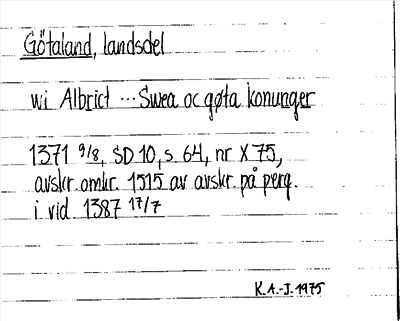 Götaland, landsdel
wi Albrict ... Swea oc gøta konunger
1371 9/8, SD 10, s. 64, nr X 75,
avskr. omkr. 1515 av avskr. på perg.
i vid. 1387 17/7
K.A.-J. 1975